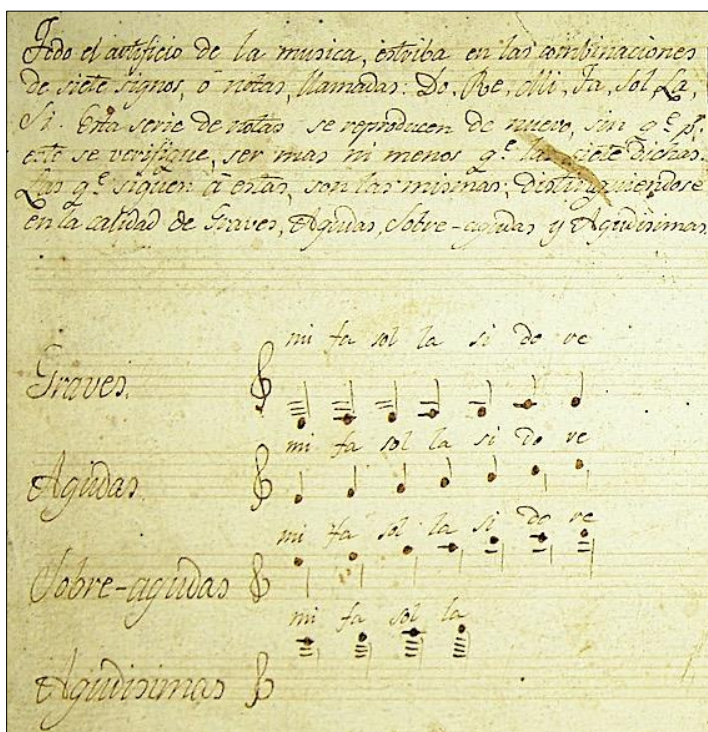 Todo el artificio de la musica, estriba en las combinaciones
de siete signos, ó notas, llamadas: Do, Re, Mi, Fa, Sol, La,
Si. Esta serie de notas se reproducen de nuevo, sin qᵉ pʳ.
este se verifique, ser mas ni menos qᵉ las siete dichas.
Las qᵉ siguen á estas, son las mismas; distinguiendose
en la calidad de Graves, Agudas, Sobre-agudas y Agudisimas.
mi fa sol la si do re
Graves.
mi fa sol la si do re
Agudas
mi fa sol la si do re
Sobre-agudas
mi fa sol la
Agudisimas